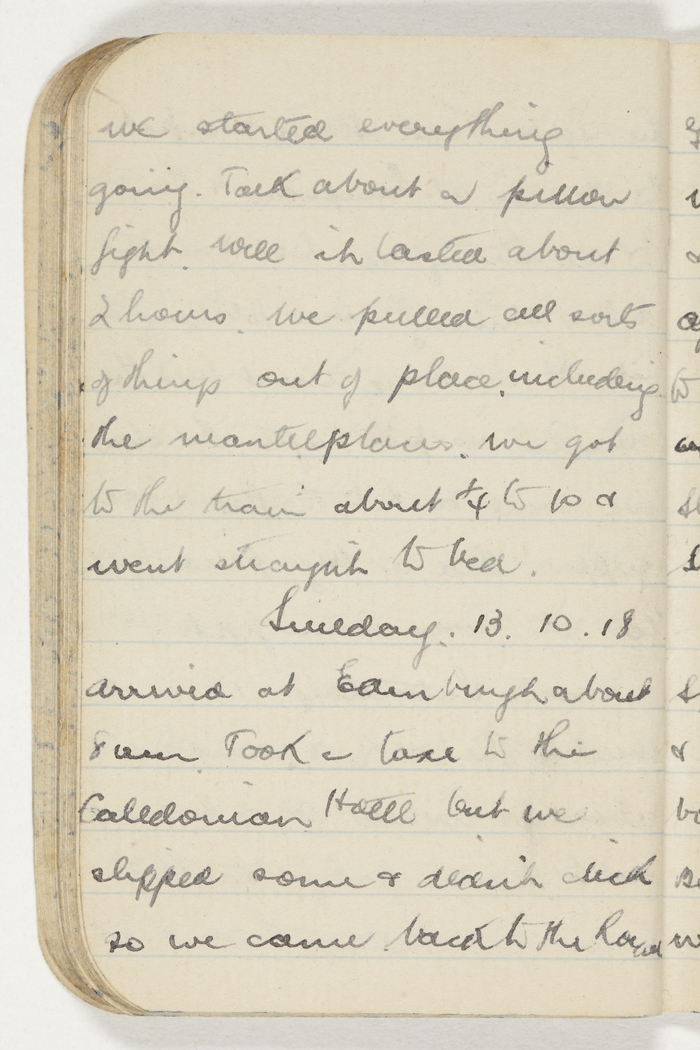 we started everything
going. Talk about a pillow
fight. well it lasted about
2 hours. We pulled all sorts
of things out of place, including
the mantelplaces. we got
to the train about ¼ to 10 &
went straight to bed.
Sunday. 13. 10. 18
arrived at Edinburgh about
8 am Took a taxi to the
Caledonian Hotell but we
slipped some & didnt click
so we came back to the